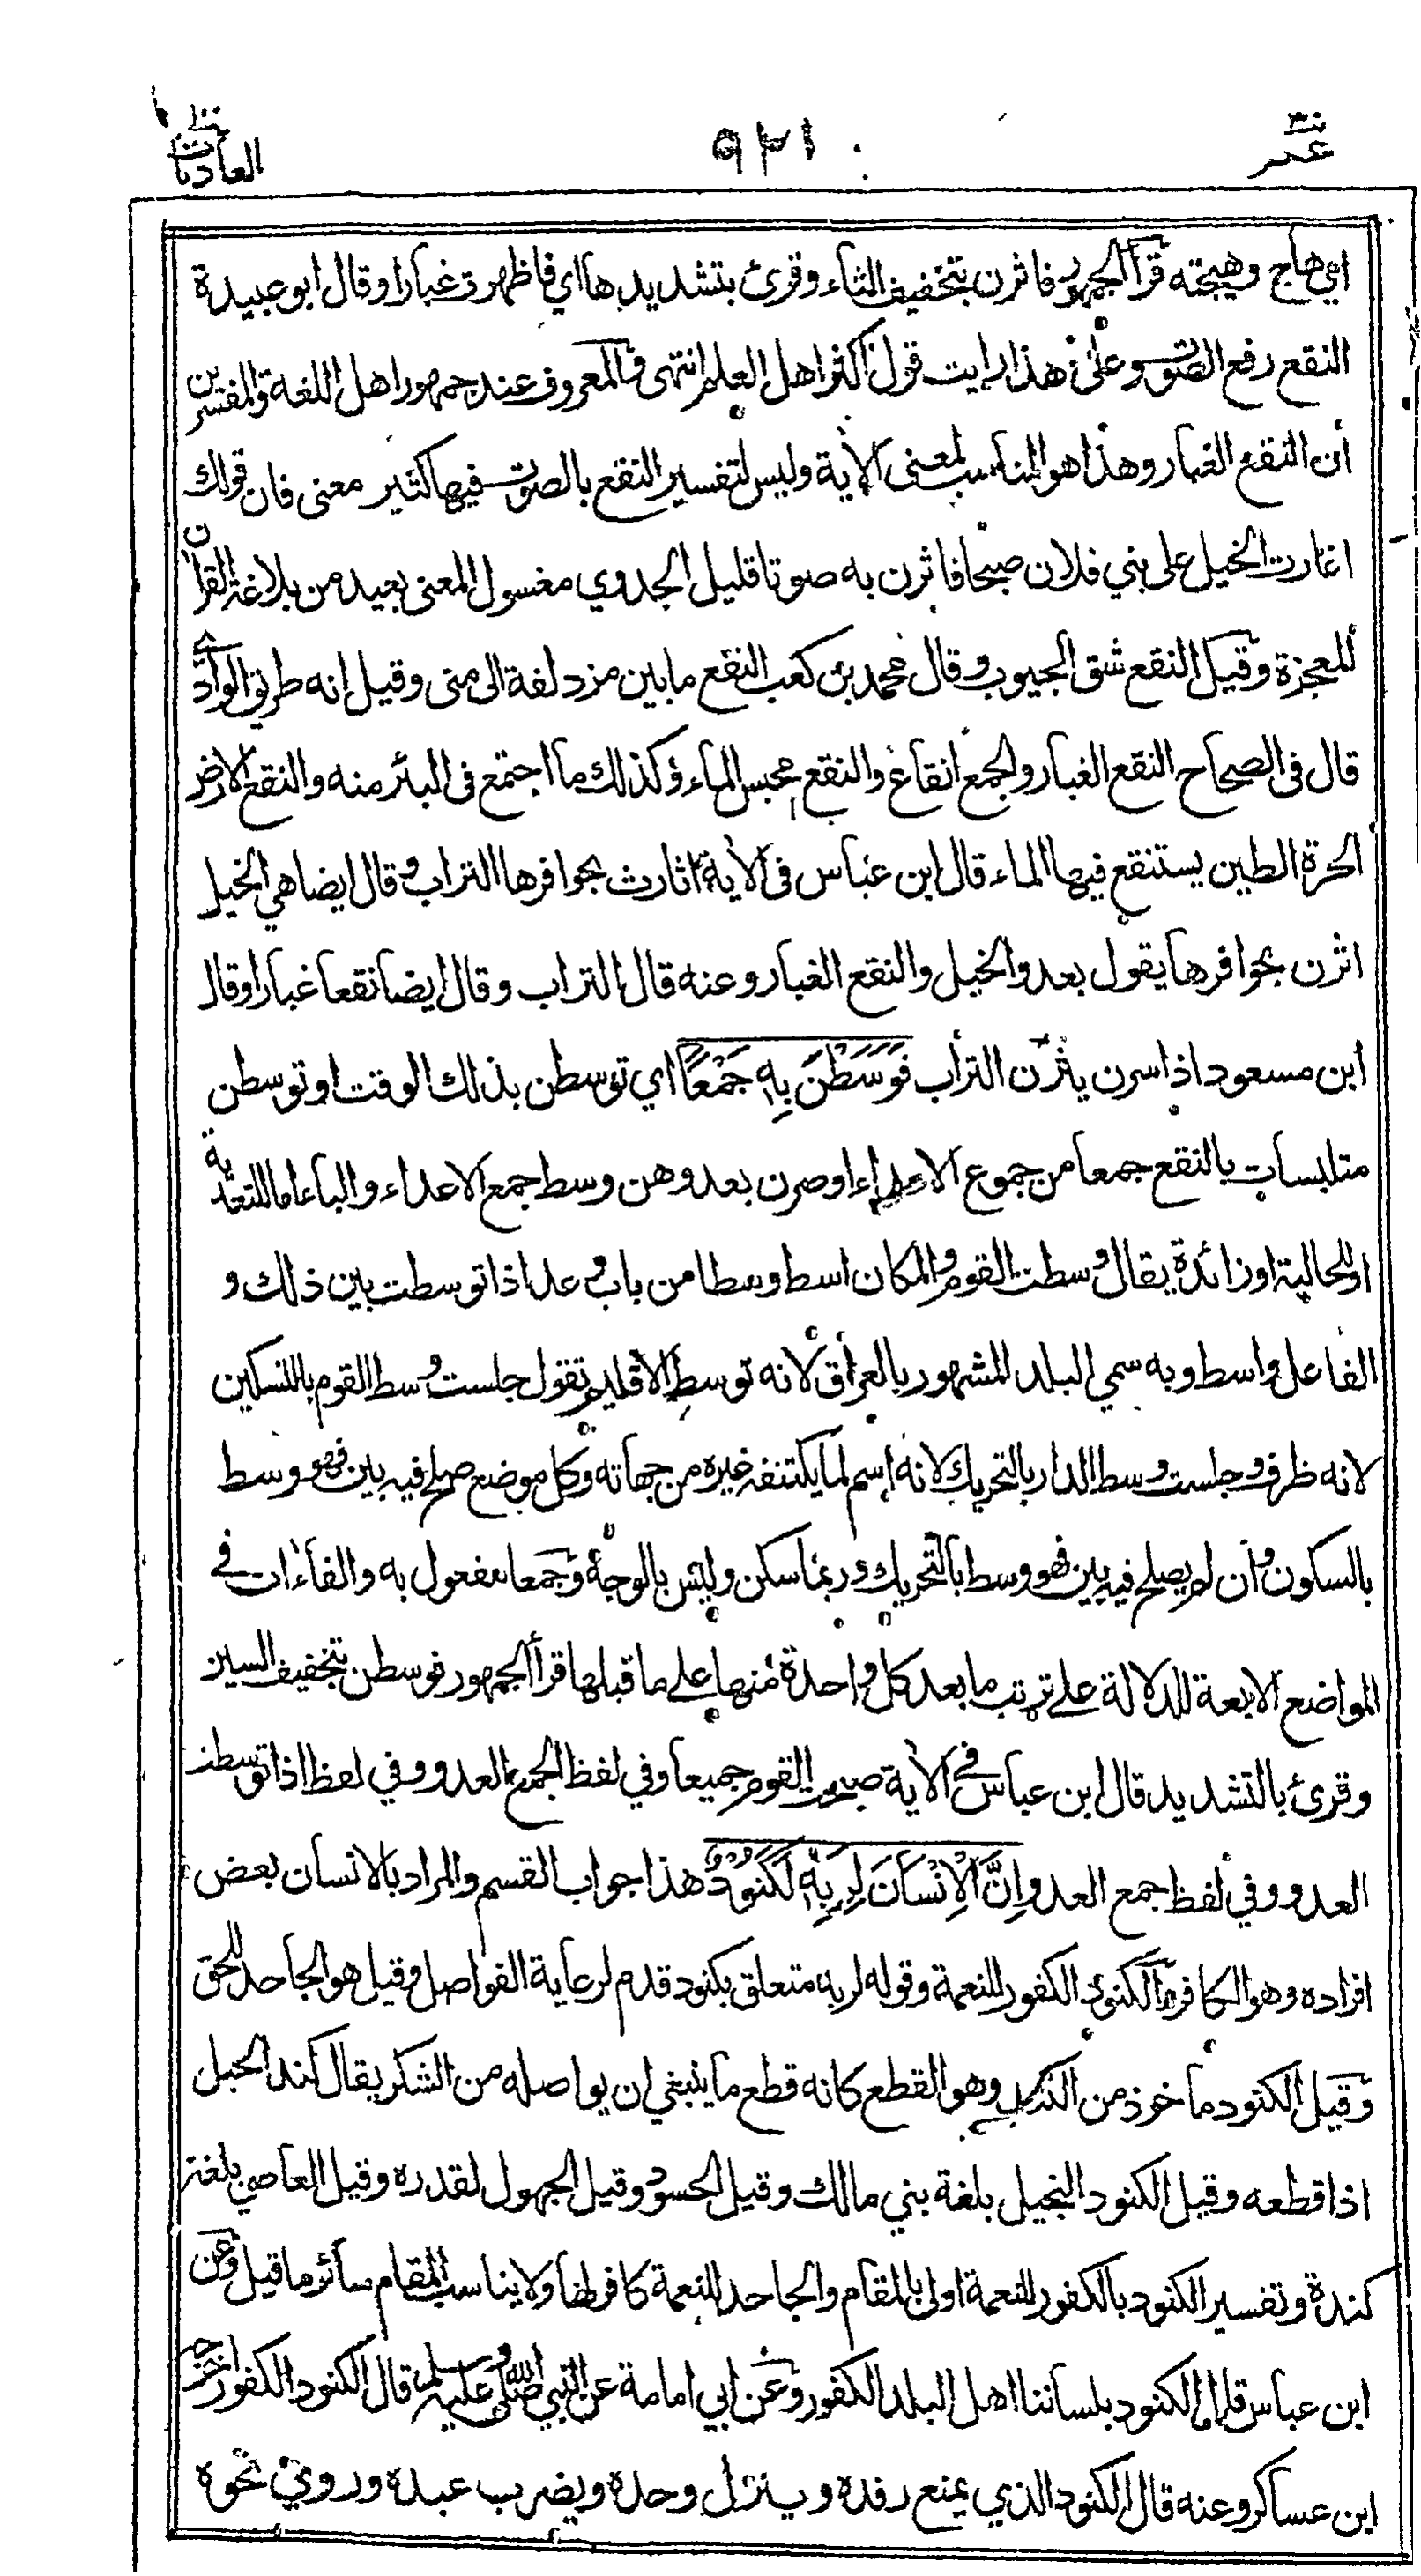 عم
٩٢١
العاديات
اي هاج وهيجته قرأ الجمهور فاثرن بتخفيف الثاء وقرئ بتشديدها اي فاظهرن غبارا وقال ابو عبيدة
النقع رفع الصوت وعلى هذا رايت قول اكثر اهل العلم انتهى والمعروف عند جمهور اهل اللغة والمفسرين
أن النقع الغبار وهذا هو المناسب لمعنى الآية وليس لتفسير النقع بالصوت فيها كثير معنى فان قولك
اغارت الخيل على بني فلان صبحا فاثرن به صوتا قليل الجدوي مغسول المعنى بعيد من بلاغة القرآن
المعجزة وقيل النقع شق الجيوب وقال محمد بن كعب النقع ما بين مزدلفة الى منى وقيل انه طريق الوادي
قال في الصحاح النقع الغبار والجمع انقاع والنقع محبس الماء وكذلك ما اجتمع في البئر منه والنقع الارض
الحرة الطين يستنقع فيها الماء قال ابن عباس في الآية اثارت بحوافرها التراب وقال ايضا هي الخيل
اثرن بحوافرها يقول بعدو الخيل والنقع الغبار وعنه قال التراب وقال ايضا نقعا غبارا وقال
ابن مسعود اذا سرن يثرن التراب فَوَسَطْنَ بِهِ جَمْعًا اي توسطن بذلك الوقت او توسطن
متلبسات بالنقع جمعا من جموع الاعداء او صرن بعدوهن وسط جمع الاعداء والباء اما للتعدية
او للحالية او زائدة يقال وسطت القوم والمكان اسط وسطا من باب وعد اذا توسطت بين ذلك و
الفاعل واسط وبه سمي البلد المشهور بالعراق لانه توسط الاقليم تقول جلست وسط القوم بالتسكين
لانه ظرف وجلست وسط الدار بالتحريك لانه اسم لما يكتنفه غيره من جهاته وكل موضع صلح فيه بين فهو وسط
بالسكون وان لم يصلح فيه بين فهو وسط بالتحريك وربما سكن وليس بالوجه وجمعا مفعول به والفاءات في
المواضع الاربعة للدلالة على ترتب ما بعد كل واحدة منها على ما قبلها قرأ الجمهور فوسطن بتخفيف السين
وقرئ بالتشديد قال ابن عباس في الآية صبحت القوم جميعا وفي لفظ الجمع العدو وفي لفظ اذا توسطن
العدو وفي لفظ جمع العدو إِنَّ الْإِنْسَانَ لِرَبِّهِ لَكَنُودٌ هذا جواب القسم والمراد بالانسان بعض
افراده وهو الكافر والكنود الكفور للنعمة وقوله لربه متعلق بكنود قدم لرعاية الفواصل وقيل هو الجاحد للحق
وقيل الكنود ماخوذ من الكند وهو القطع كانه قطع ما ينبغي ان يواصله من الشكر يقال كند الحبل
اذا قطعه وقيل الكنود البخيل بلغة بني مالك وقيل الحسود وقيل الجهول لقدره وقيل العاصي بلغة
كندة وتفسير الكنود بالكفور للنعمة اولى بالمقام والجاحد للنعمة كافر لها ولا يناسب المقام سائر ما قيل وعن
ابن عباس قال الكنود بلساننا اهل البلد الكفور وعن ابي امامة عن النبي صلى الله عليه وسلم قال الكنود الكفور اخرجه
ابن عساكر وعنه قال الكنود الذي يمنع رفده وينزل وحده ويضرب عبده وروي نحوه